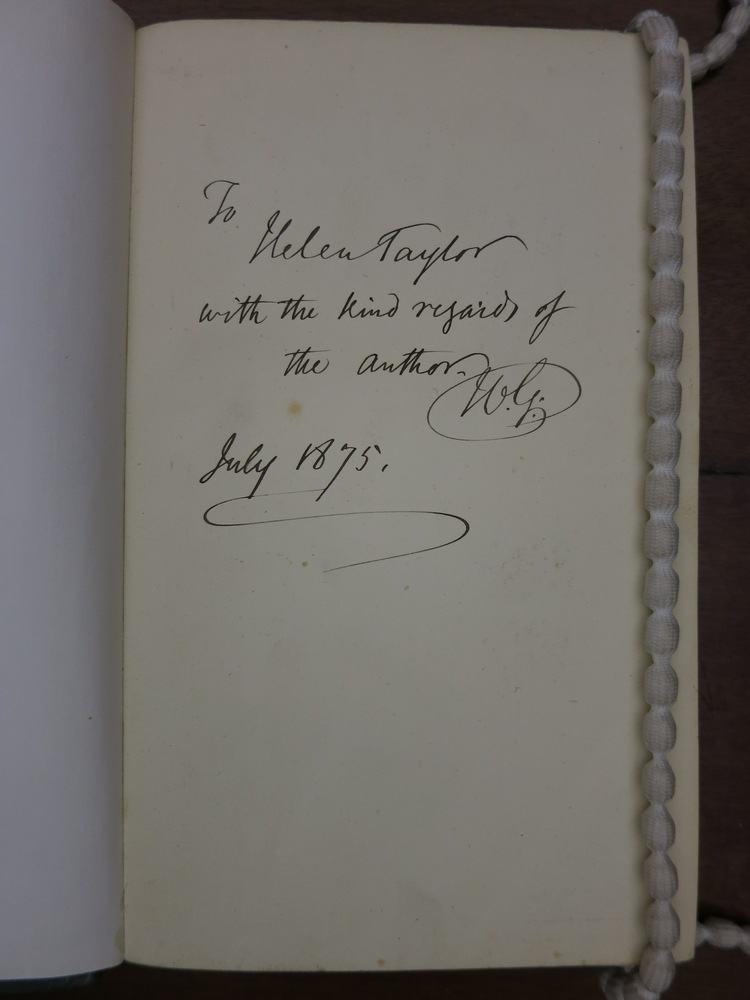 To
Helen Taylor
with the kind regards of
the author.
W.G.
July 1875.